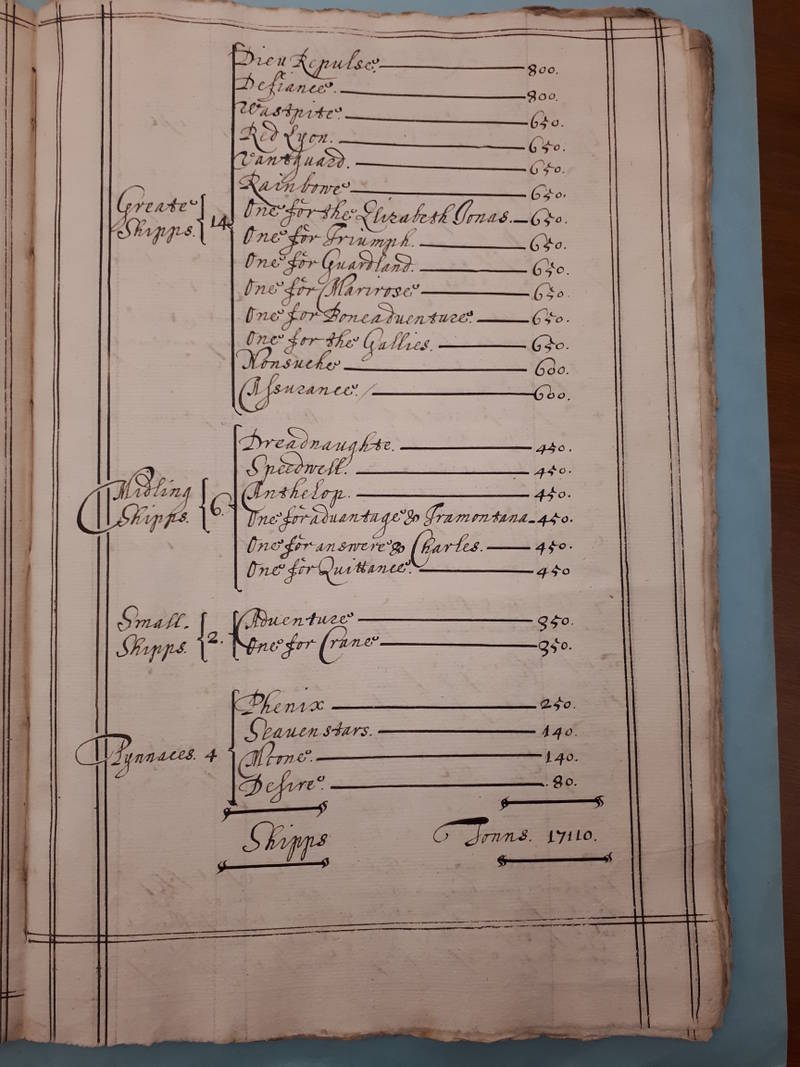 Dieu Repulse. 800.
Defiance. 800.
Wastpite. 650.
Red Lyon. 650.
Vantguard. 650.
Rainbowe 650.
Greate Shipps. 14. One for the Elizabeth Jonas. 650.
One for Triumph. 650.
One for Guardland. 650.
One for Marirose 650.
One for Boneadventure. 650.
One for the Gallies. 650.
Nonsuche 600.
Assurance. / 600.
Dreadnaughte. 450.
Speedwell. 450.
Midling Shipps. 6. Anthelop. 450.
One for advantage & Tramontana 450.
One for answere & Charles. 450.
One for Quittance. 450
Small Shipps. 2. Adventure 350.
One for Crane 350.
Phenix 250.
Seauenstars. 140.
Pynnaces. 4 Moone. 140.
Desire 80.
Shipps Tonns. 17110.